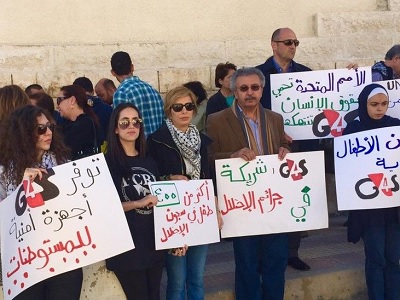 الأمم المتحدة تحمي
حقوق الإنسان
تنتهكها
G4S
ن الأطفال
ية
G4S
G4S شريكة
في
جرائم الإحتلال
أكثر من ٤٠٠
طفل في سجون
الإحتلال
G4S توفر
أجهزة أمنية
للمستوطنات